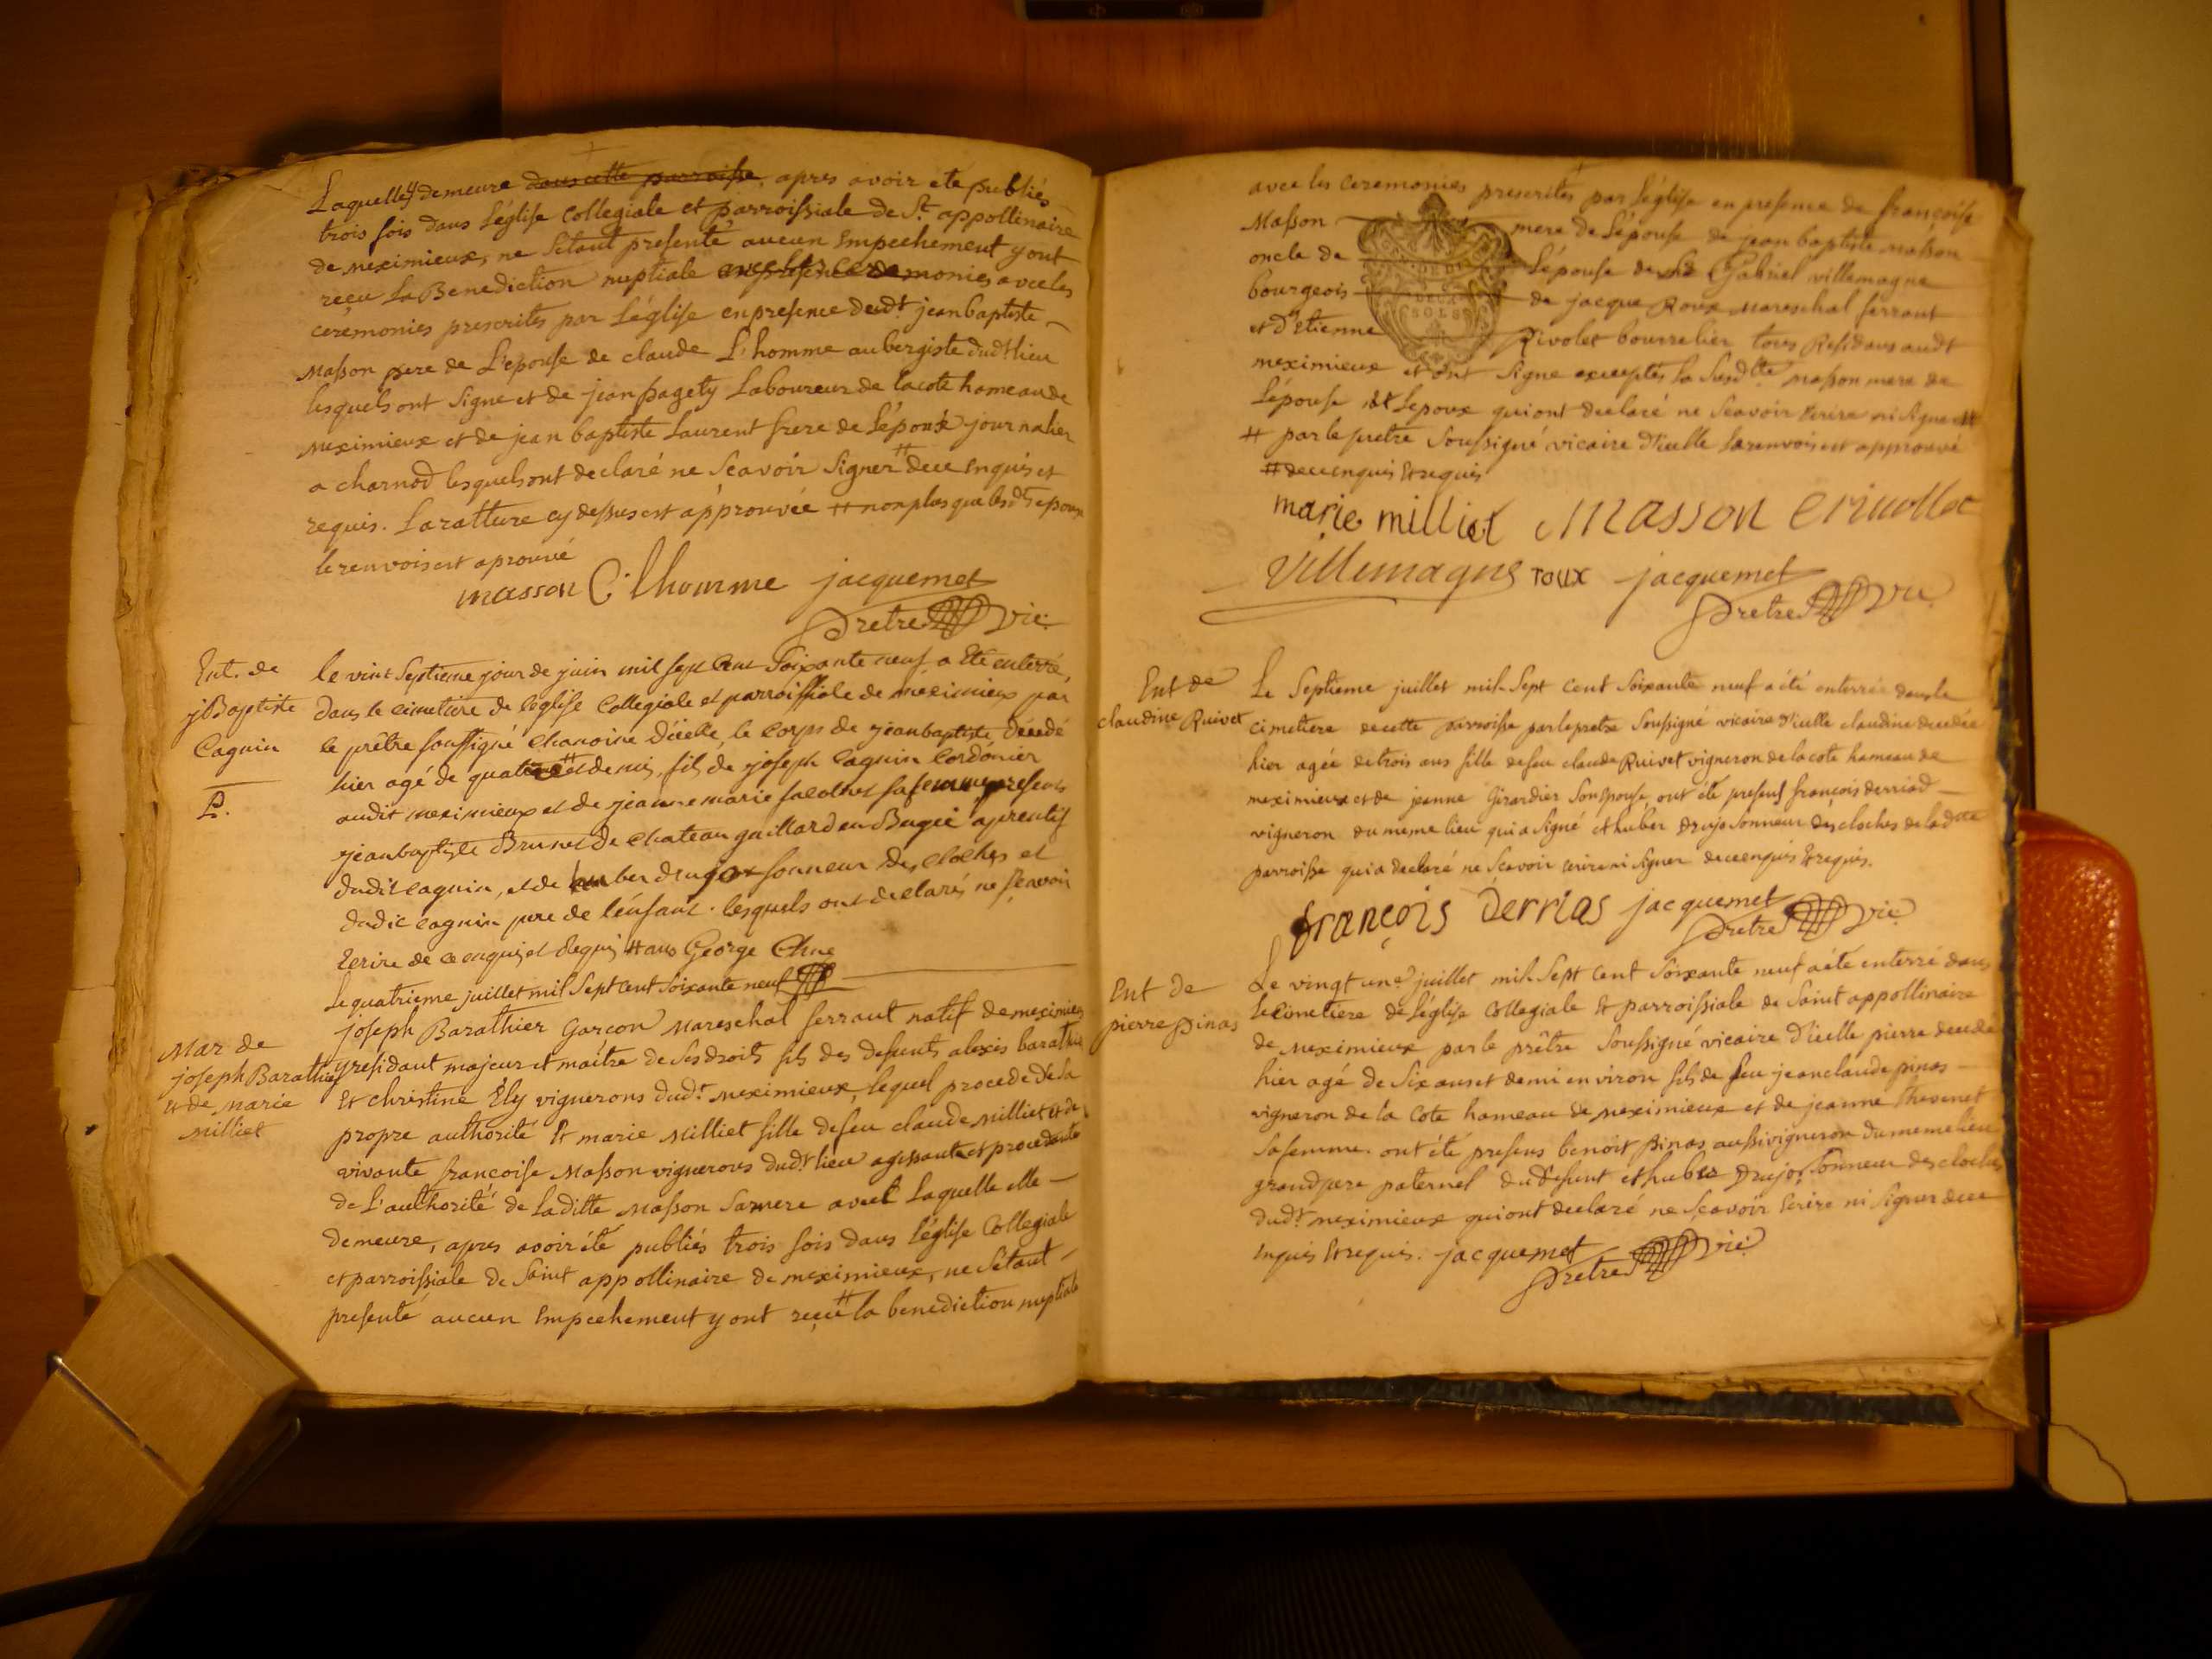 Laquelle y demeure dans cette parroisse, apres avoir été publiés
trois fois dans L'église Collegiale et parroissiale de St. appollinaire
de meximieux, ne S'etant presenté aucun Empechement y ont
reçu La Benediction nuptiale monies avec les
ceremonies prescrites par L'église en presence dudt. jean baptiste
Masson pere de L'epouse de claude L'homme aubergiste dudt lieu
lesquels ont Signe et de jean pagety Laboureur de la cote hameau de
Meximieux et de jean baptiste Laurent frere de L'époux journalier
a charnod lesquels ont declaré ne Scavoir Signer # de ce Enquis et
requis. La ratture cy dessus est approuvée # non plus que lesdts epoux
le renvois est aprouvé
masson C. lhomme jacquemet
Pretre vic.
Ent. de
jBaptiste
Caguin
P.
le vint Septieme jour de juin mil sept Cent Soixante neuf a Eté enterré,
dans le cimetiere de l'eglise Collegiale et parroissiale de méximieux par
le prêtre soussigné chanoine d'icelle, le corps de jeanbaptiste décedé
hier agé de quatre # et demis, fils de joseph Caguin Cordónier
audit meximieux et de jeanne marie sa femme presens
jeanbaptiste Brunet de Chateau gaillard en Bugei aprentif
dudit caguin, et de huber drujox sonneur des cloches et
dudit caguin pere de l'énfant. lesquels ont declarés ne scavoir
Ecrire de ce enquis et requis # ans George
Le quatrieme juillet mil Sept Cent Soixante neuf
Mar de
joseph Barathier
et de Marie
Milliet
joseph Barathier Garcon Mareschal ferrant natif de meximieux
y residant majeur et maitre de Ses droits fils des defunts alexis barathier
Et christine Ely vignerons dudt. Meximieux, lequel procede de Sa
propre authorité Et marie Milliet fille de feu claude Milliet et de
vivante francoise Masson vignerons dudt. lieu agissante et procedante
de L'authorité de La ditte Masson Sa mere avec Laquelle elle
demeure, apres avoir été publiés trois fois dans L'église Collegiale
et parroissiale de Saint appollinaire de meximieux, ne S'etant
presenté aucun Empechement y ont reçu # la benediction nuptiale
avec les ceremonies prescrites par L'église en presence de françoise
Masson mere de L'épouse de jean baptiste Masson
oncle de L'épouse de Gabriel villemagne
bourgeois de jacque Roux Mareschal ferrant
et d'Etienne Rivolet bourrelier tous Residans audt
meximieux et ont Signe exceptés la Susdtte Masson mere de
L'épouse et L'epoux qui ont declaré ne Scavoir Ecrire ni Signer #
# par le pretre Soussigné vicaire d'icelle le renvois est approuvé
# de ce enquis Et requis
marie milliet Masson E rivollet
Villemagne roux jacquemet
Pretre vic
Ent de
claudine Ruivet
Le Septieme juillet mil Sept Cent Soixante neuf a été enterrée dans le
cimetiere de cette parroisse par le pretre Soussigné vicaire d'icelle claudine decedée
hier agée de trois ans fille de feu claude Ruivet vigneron de la cote hameau de
meximieux et de jeanne Girardier Son Epouse, ont été presens françois derriad
vigneron du meme lieu qui a Signé et huber Drujo Sonneur des cloches de ladtte
parroisse qui a declaré ne Scavoir ecrire ni Signer de ce enquis Et requis.
françois Derrias jacquemet
Pretre vic
Ent de
pierre Pinas
Le vingt une juillet mil Sept Cent Soixante neuf a été enterré dans
le cimetiere de L'église Collegiale Et parroissiale de Saint appollinaire
de Meximieux par le prêtre Soussigné vicaire d'icelle pierre decedé
hier agé de Six ans et demi environ fils de feu jean claude pinas
vigneron de la Cote hameau de Meximieux et de jeanne Thevenet
Sa femme. ont été presens benoit Pinas aussi vigneron du meme lieu
grand pere paternel du defunt et huber Drujo Sonneur des cloches
dudt. meximieux qui ont declaré ne Sçavoir Ecrire ni Signer de ce
Enquis Et requis. jacquemet
Pretre vic